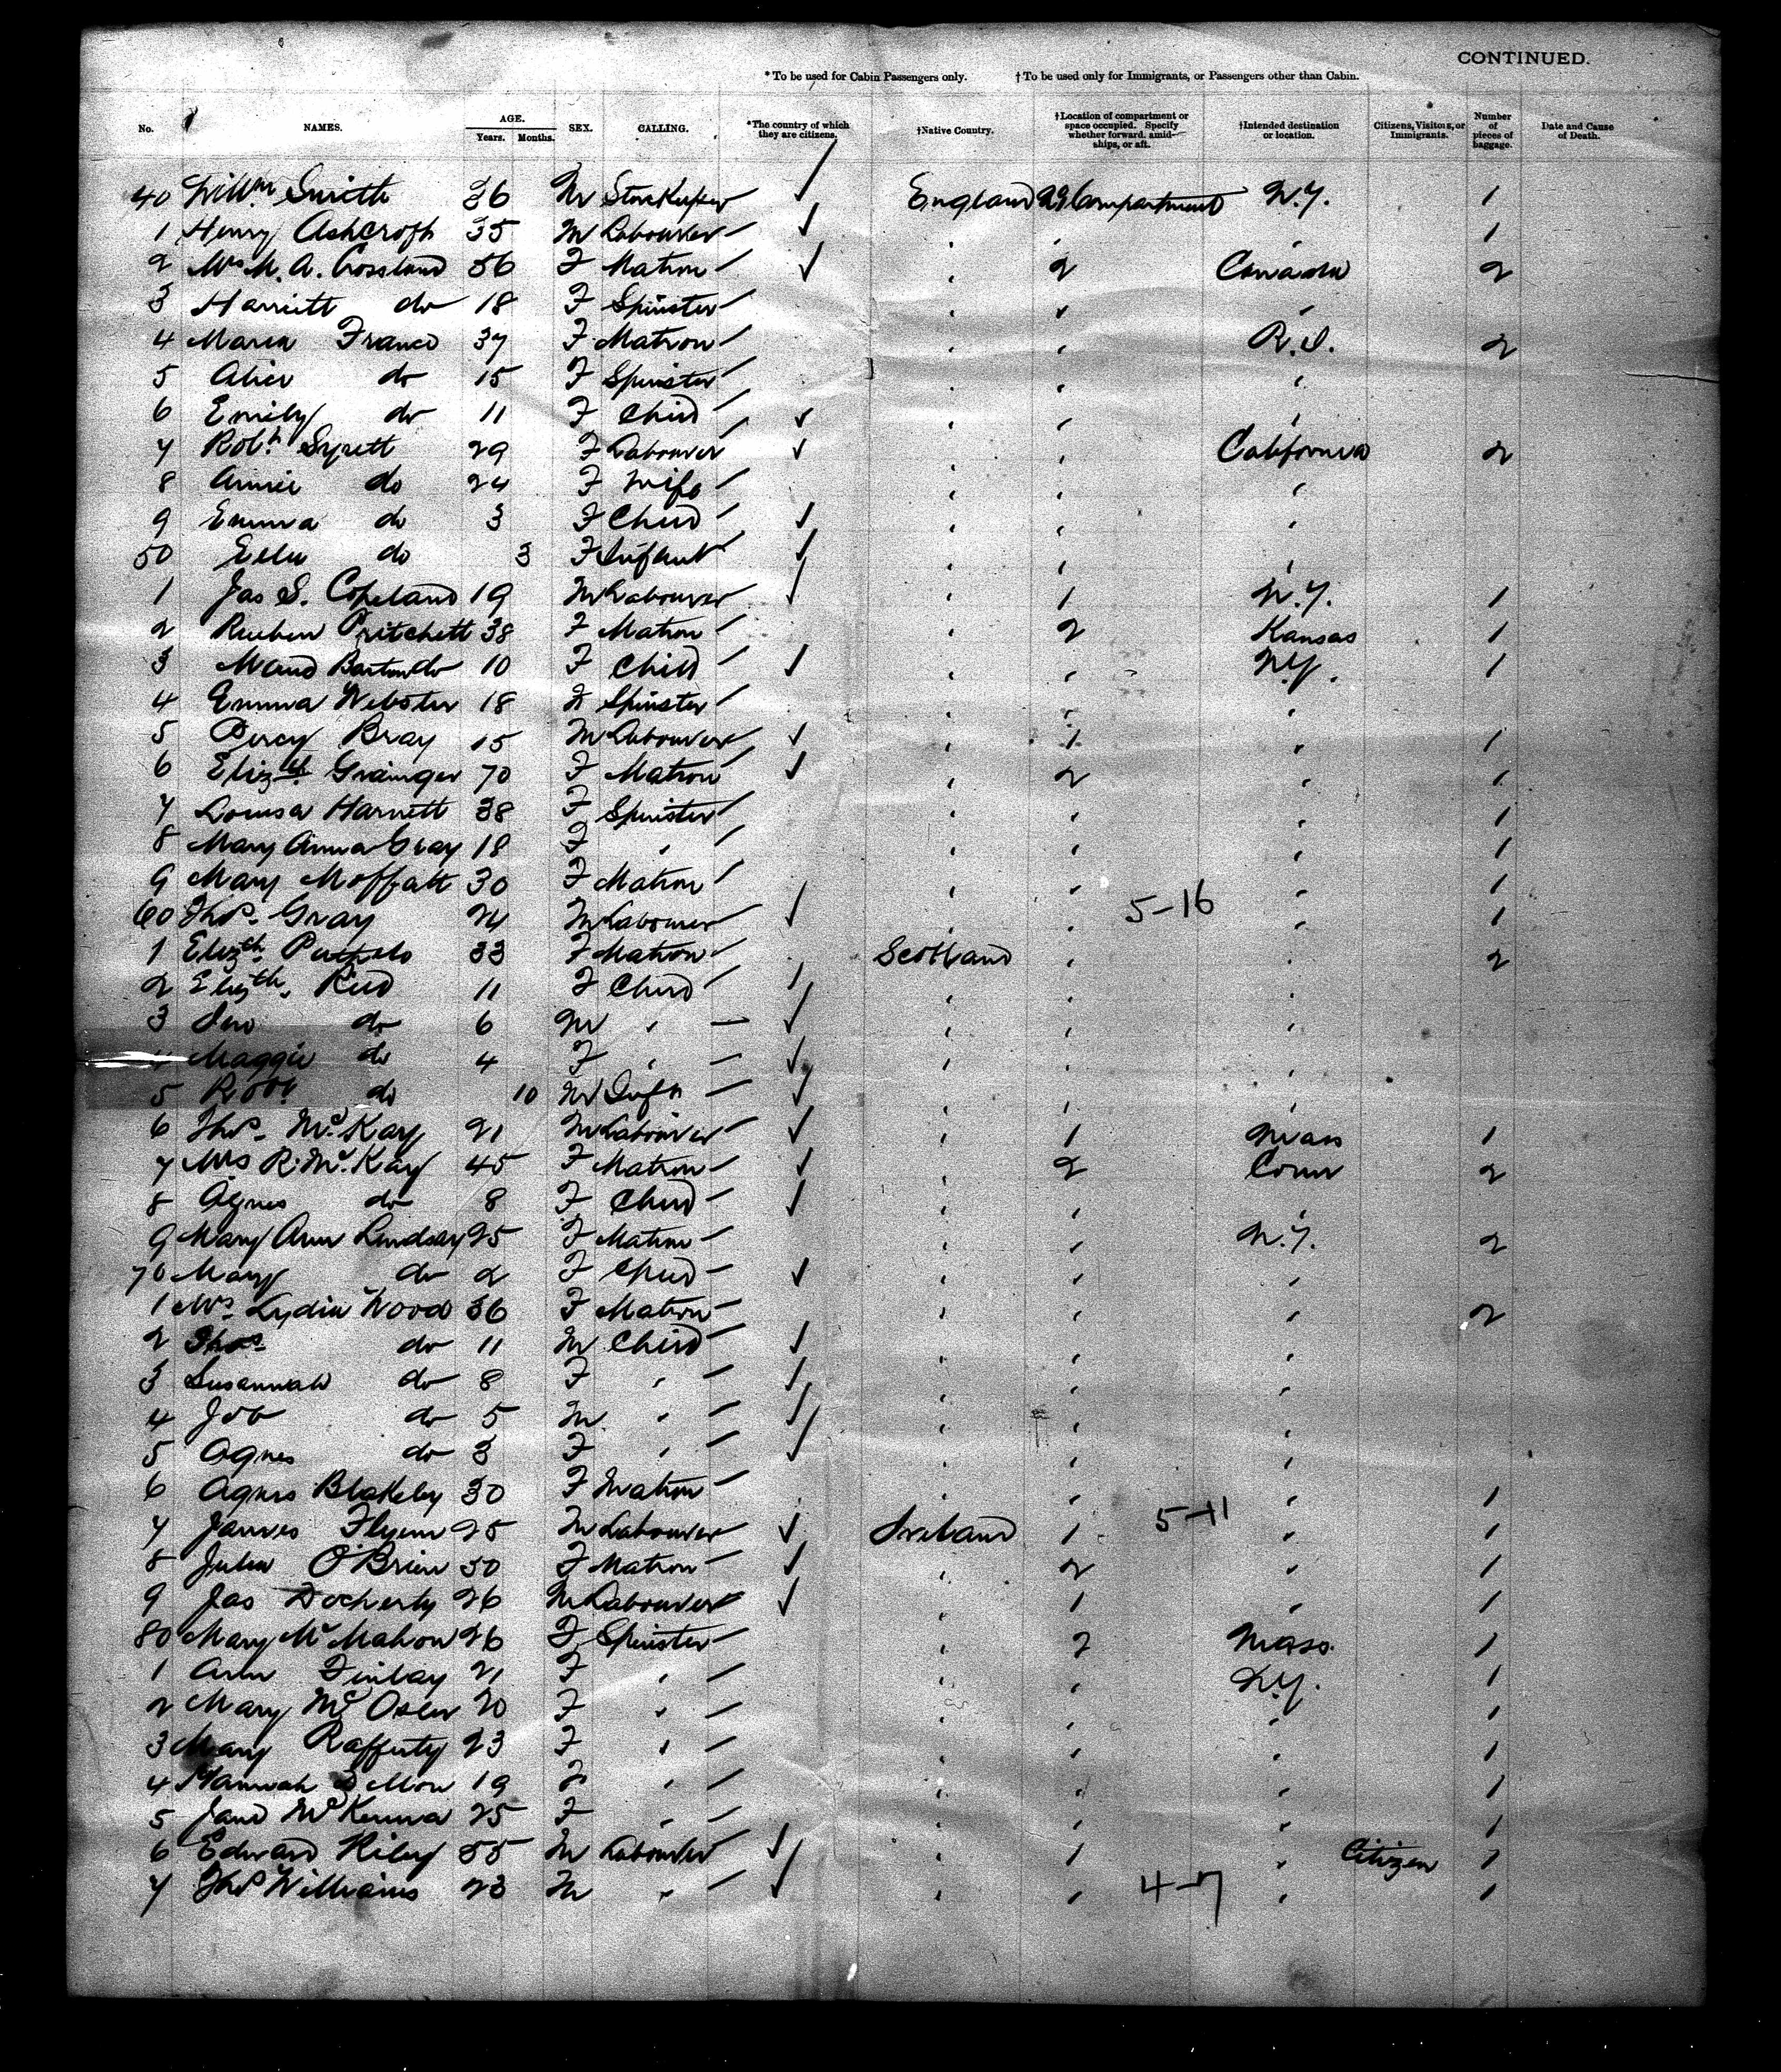 CONTINUED.
* To be used for Cabin Passengers only. † To be used only for Immigrants, or Passengers other than Cabin.
No. NAMES. AGE. Years. Months. SEX. CALLING. *The country of which they are citizens. †Native Country. †Location of compartment or space occupied. Specify whether forward, amid-ships, or aft. †Intended destination or location. Citizens, Visitors, or Immigrants. Number of pieces of baggage. Date and Cause of Death.
40 Willm Smith 36 M Storekeeper England Compartment N.Y. 1
1 Henry Ashcroft 35 M Labourer 1
2 Mrs M. A. Crossland 56 F Matron 2 Canada 2
3 Harriett do 18 F Spinster
4 Maria France 37 F Matron R.I. 2
5 Alice do 15 F Spinster
6 Emily do 11 F Child
7 Robt Syrett 29 F Labourer California 2
8 Annie do 24 F Wife
9 Emma do 3 F Child
50 Ella do 3 F Infant
1 Jas S. Copeland 19 M Labourer 1 N.Y. 1
2 Reuben Pritchett 38 F Matron 2 Kansas 1
3 Maud do 10 F Child N.Y. 1
4 Emma Webster 18 F Spinster
5 Percy Bray 15 M Labourer 1 1
6 Elizth Grainger 70 F Matron 2 1
7 Louisa Harnett 38 F Spinster 1
8 Mary Anna Gray 18 F 1
9 Mary Moffatt 30 F Matron 1
60 Thos. Gray 24 M Labourer 5-16 1
1 Elizth. 33 F Matron Scotland 2
2 Elizth. Reid 11 F Child
3 do 6 M
4 Maggie do 4 F
5 Robt do 10 M Inft
6 Thos. McKay 21 M Labourer 1 Mass 1
7 Mrs R. McKay 45 F Matron 2 Conn 2
8 Agnes do 8 F Child
9 Mary Ann Lindsay 25 F Matron N.Y. 2
70 Mary do 2 F Child
1 Mrs Lydia Wood 36 F Matron 2
2 Thos do 11 M Child
3 Susannah do 8 F
4 Job do 5 M
5 Agnes do 3 F
6 Agnes Blakeley 30 F Matron 1
7 James Flynn 25 M Labourer Ireland 1 5-11 1
8 Julia O'Brien 50 F Matron 2 1
9 Jas Docherty 26 M Labourer 1 1
80 Mary McMahon 26 F Spinster 2 Mass. 1
1 Ann Finlay 21 F N.Y. 1
2 Mary Mc 20 F 1
3 Mary Rafferty 23 F 1
4 Hannah 19 F 1
5 Jane McKenna 25 F 1
6 Edward Riley 55 M Labourer 1 Citizen 1
7 Thos Williams 23 M 4-7 1